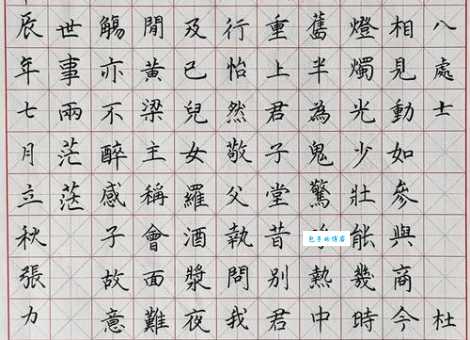 八處士 杜
相見動如參與商今
燈燭光少壯能幾時
舊半為鬼驚熱中
重上君子堂昔別君
行怡然敬父執問我
及已兒女羅酒漿夜
閒黃梁主稱會面難
觴亦不醉感子故意
世事兩茫茫
辰年七月立秋張力